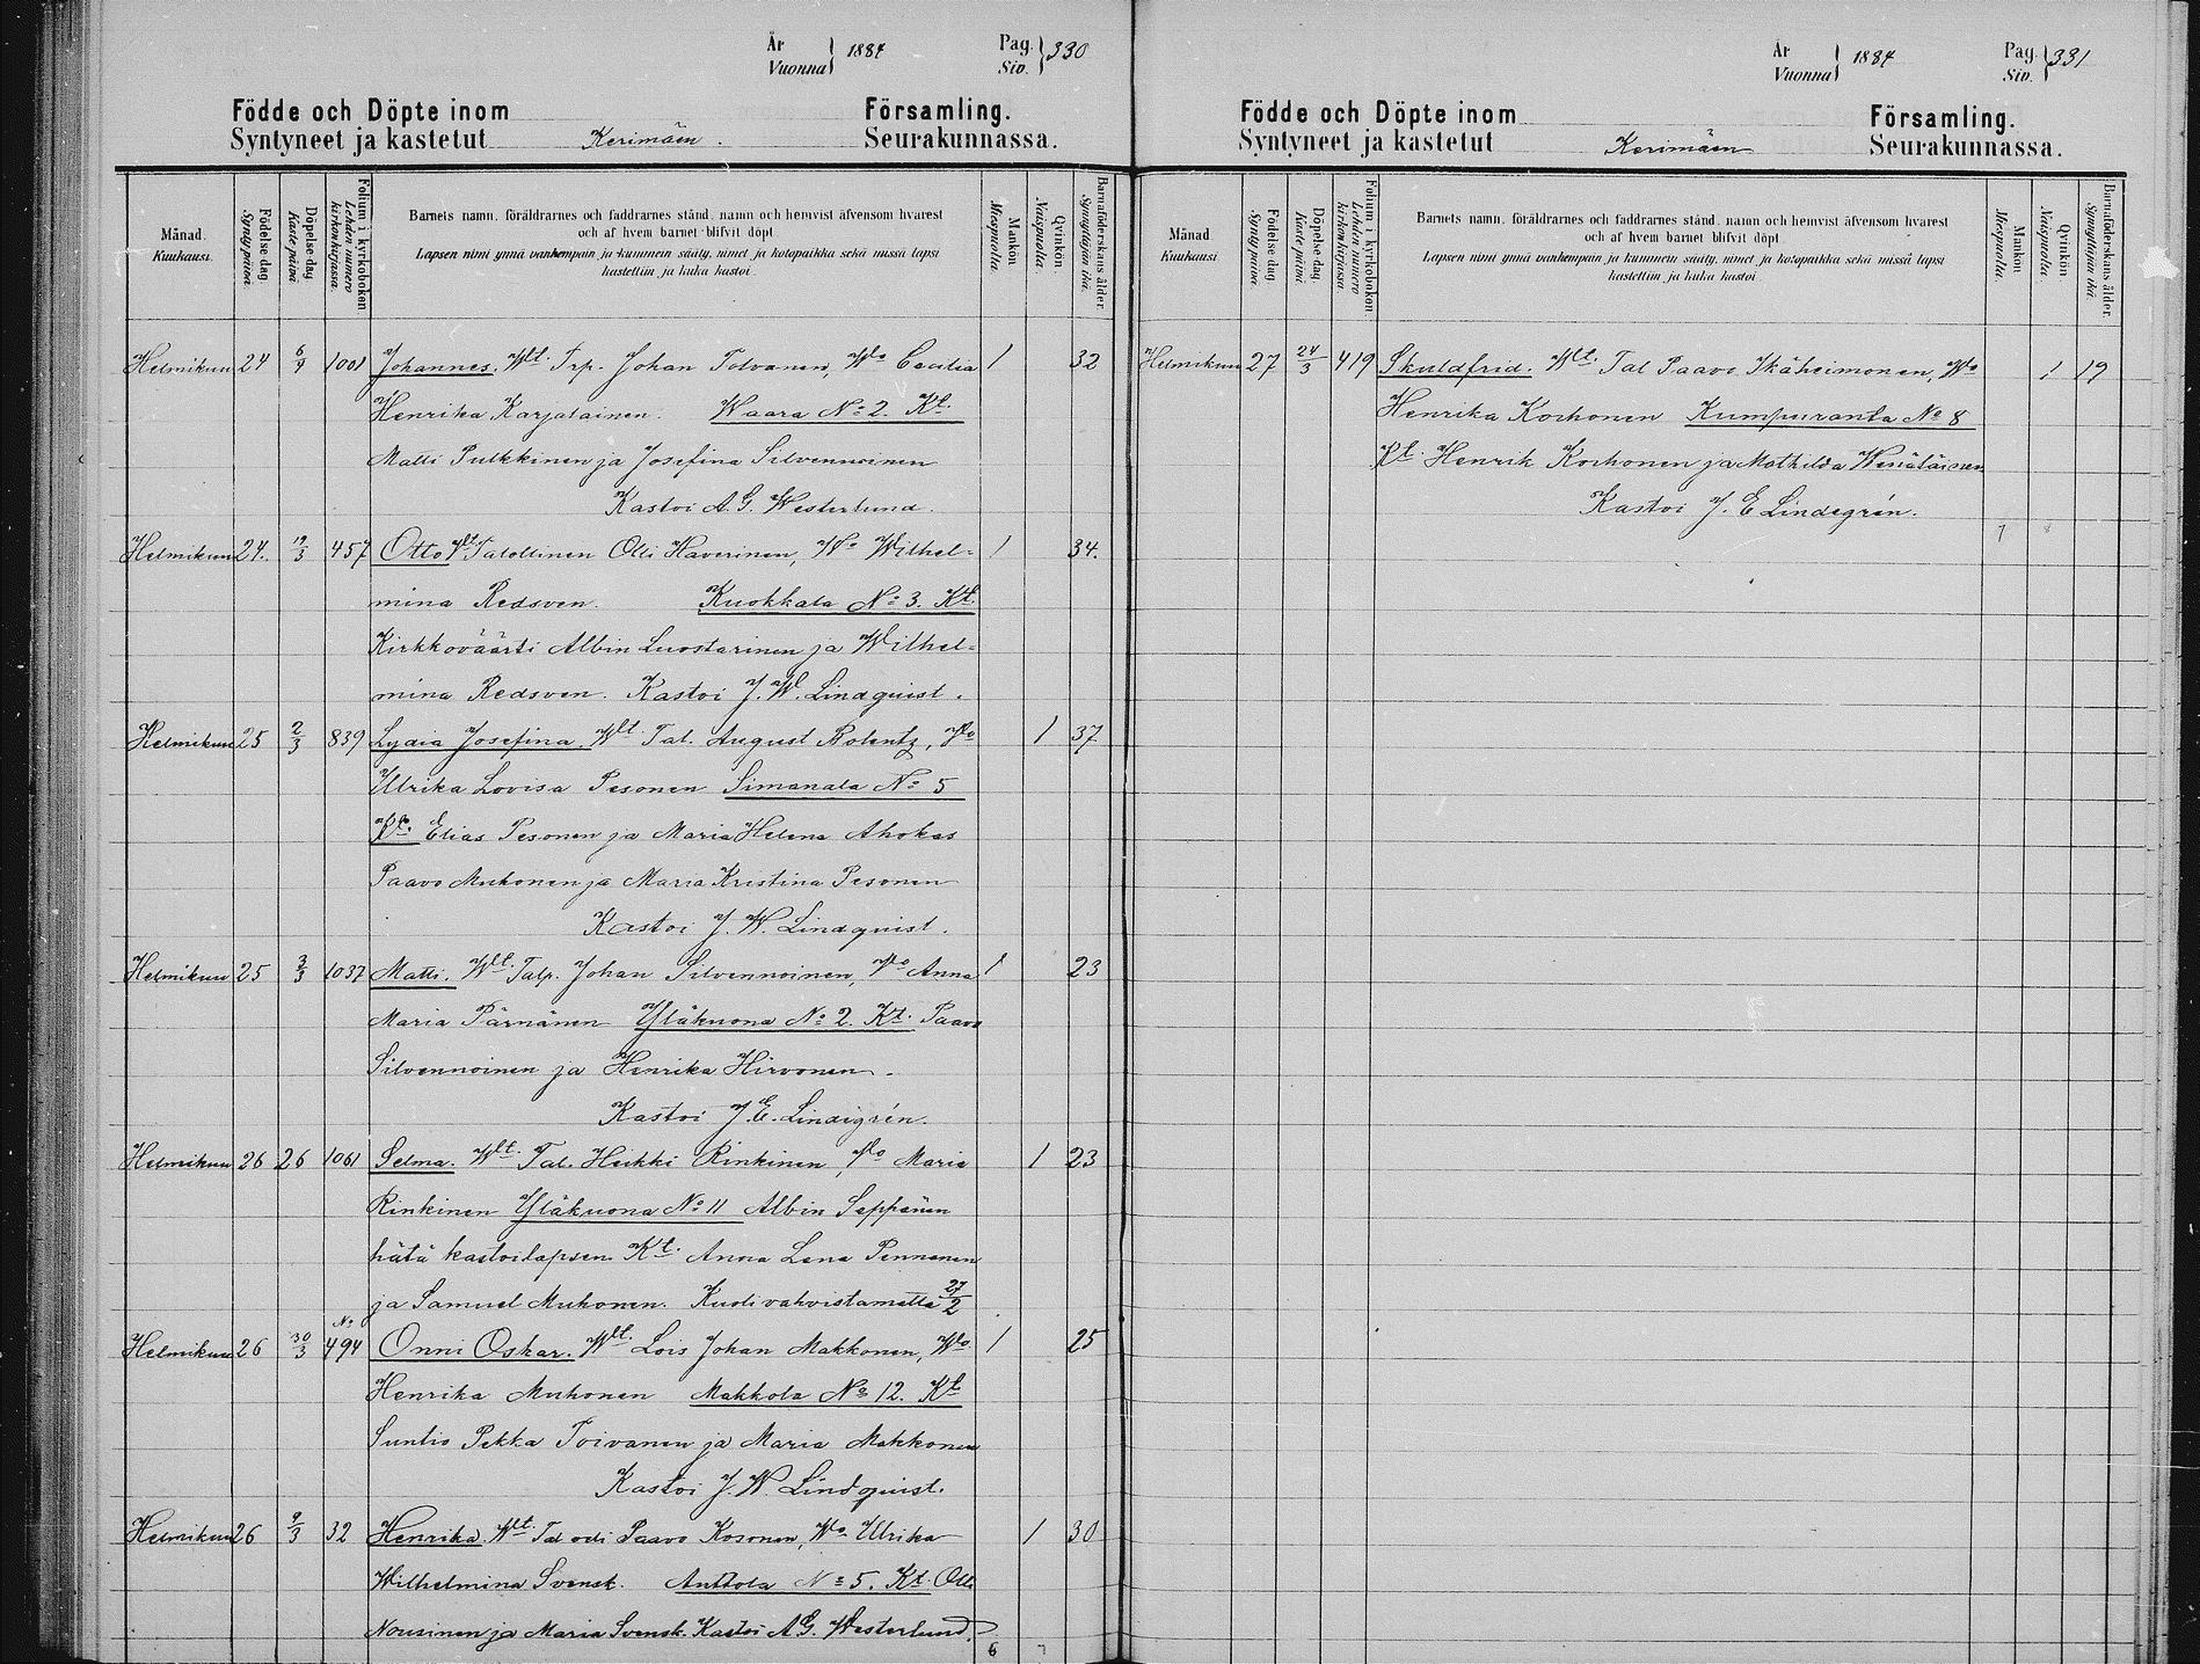 År
Vuonna
1884
Pag.
Siv.
330
Födde och Döpte inom
Församling.
Syntyneet ja kastetut
Kerimäen.
Seurakunnassa.
Månad.
Kuukausi.
Födelse dag.
Synty päivä.
Döpelse dag.
Kaste päivä.
Folium i kyrkoboken.
Lehden numero
kirkonkirjassa.
Barnets namn, föräldrarnes och faddrarnes stånd, namn och hemvist äfvensom hvarest
och af hvem barnet blifvit döpt.
Lapsen nimi ynnä vanhempain ja kummein sääty, nimet ja kotopaikka sekä missä lapsi
kastettiin ja kuka kastoi.
Mankön.
Miespuolta.
Qvinkön.
Naispuolta.
Barnaföderskans ålder.
Synnyttäjän ikä.
Helmikuu 24 6/4 1001 Johannes. Wt. Trp. Johan Tolvanen, Wo Cecilia 1 32
Henrika Karjalainen. Waara No 2. Kt.
Matti Pulkkinen ja Josefina Silvennoinen
Kastoi A. G. Westerlund.
Helmikuu 24. 19/3 457 Otto Wt. Talollinen Olli Haverinen, Wo Wilhel= 1 34.
mina Redsven. Kuokkala No 3. Kt.
Kirkkoväärti Albin Luostarinen ja Wilhel=
mina Redsven. Kastoi J. W. Lindquist.
Helmikuu 25 2/3 839 Lydia Josefina. Wt. Tal. August Bolentz, Wo 1 37
Ulrika Lovisa Pesonen Simanala No 5
Kt. Elias Pesonen ja Maria Helena Ahokas
Paavo Muhonen ja Maria Kristina Pesonen
Kastoi J. W. Lindquist.
Helmikuu 25 3/3 1037 Matti. Wt. Talp. Johan Silvennoinen, Wo Anna 1 23
Maria Pärnänen Yläkuona No 2. Kt. Paavo
Silvennoinen ja Henrika Hirvonen.
Kastoi J. E. Lindegrén.
Helmikuu 26 26 1061 Selma. Wt. Tal. Heikki Rinkinen, Wo Maria 1 23
Rinkinen Yläkuona No 11 Albin Seppänen
hätä kastoi lapsen Kt. Anna Lena Pennanen
ja Samuel Muhonen. Kuoli vahvistamatta 27/2
No
Helmikuu 26 30/3 494 Onni Oskar. Wt. Lois Johan Makkonen, Wo 1 25
Henrika Muhonen Makkola No 12. Kt
Suntio Pekka Toivanen ja Maria Makkonen
Kastoi J. W. Lindquist.
Helmikuu 26 9/3 32 Henrika. Wt. Tal Paavo Kosonen, Wo Ulrika 1 30
Wilhelmina Svensk. Anttola No 5. Kt. Olli
Nousinen ja Maria Svensk. Kastoi A G. Westerlund.
6 7
År
Vuonna
1884
Pag.
Siv.
331
Födde och Döpte inom
Församling.
Syntyneet ja kastetut
Kerimäen
Seurakunnassa.
Månad.
Kuukausi.
Födelse dag.
Synty päivä.
Döpelse dag.
Kaste päivä.
Folium i kyrkoboken.
Lehden numero
kirkonkirjassa.
Barnets namn, föräldrarnes och faddrarnes stånd, namn och hemvist äfvensom hvarest
och af hvem barnet blifvit döpt.
Lapsen nimi ynnä vanhempain ja kummein sääty, nimet ja kotopaikka sekä missä lapsi
kastettiin ja kuka kastoi.
Mankön
Miespuolta.
Qvinkön
Naispuolta.
Barnaföderskans ålder.
Synnyttäjän ikä.
Helmikuu 27 24/3 419 Skuldfrid. Wt. Tal Paavo Ikäheimonen, Wo 1 19
Henrika Korhonen Kumpuranta No 8
Kt. Henrik Korhonen ja Mathilda Wenäläinen
Kastoi J. E Lindegrén.
7 8